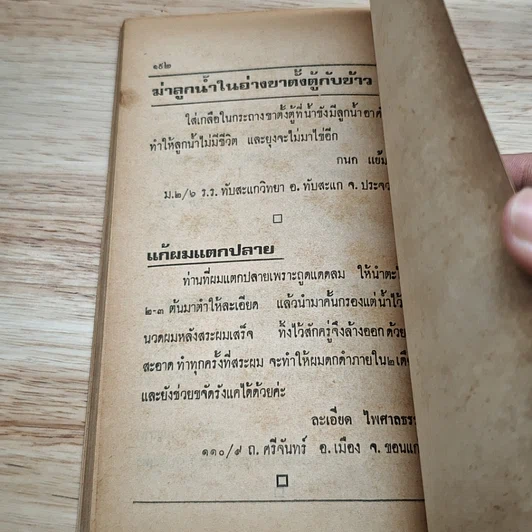 ๑๕๒
ฆ่าลูกน้ำในอ่างขาตั้งตู้กับข้าว
ใส่เกลือในกระถางขาตั้งตู้ที่น้ำขังมีลูกน้ำอาศั
ทำให้ลูกน้ำไม่มีชีวิต และยุงจะไม่มาไข่อีก
กนก แย้ม
ม.๒/๖ ร.ร. ทับสะแกวิทยา อ. ทับสะแก จ. ประจว
แก้ผมแตกปลาย
ท่านที่ผมแตกปลายเพราะถูดแดดลม ให้นำตะไ
๒-๓ ต้นมาตำให้ละเอียด แล้วนำมาคั้นกรองแต่น้ำไว้
นวดผมหลังสระผมเสร็จ ทั้งไว้สักครู่จึงล้างออกด้วย
สะอาด ทำทุกครั้งที่สระผม จะทำให้ผมดกดำภายใน๒เดื
และยังช่วยขจัดรังแคได้ด้วยค่ะ
ละเอียด ไพศาลธร
๑๑๐/๙ ถ. ศรีจันทร์ อ. เมือง จ. ขอนแก